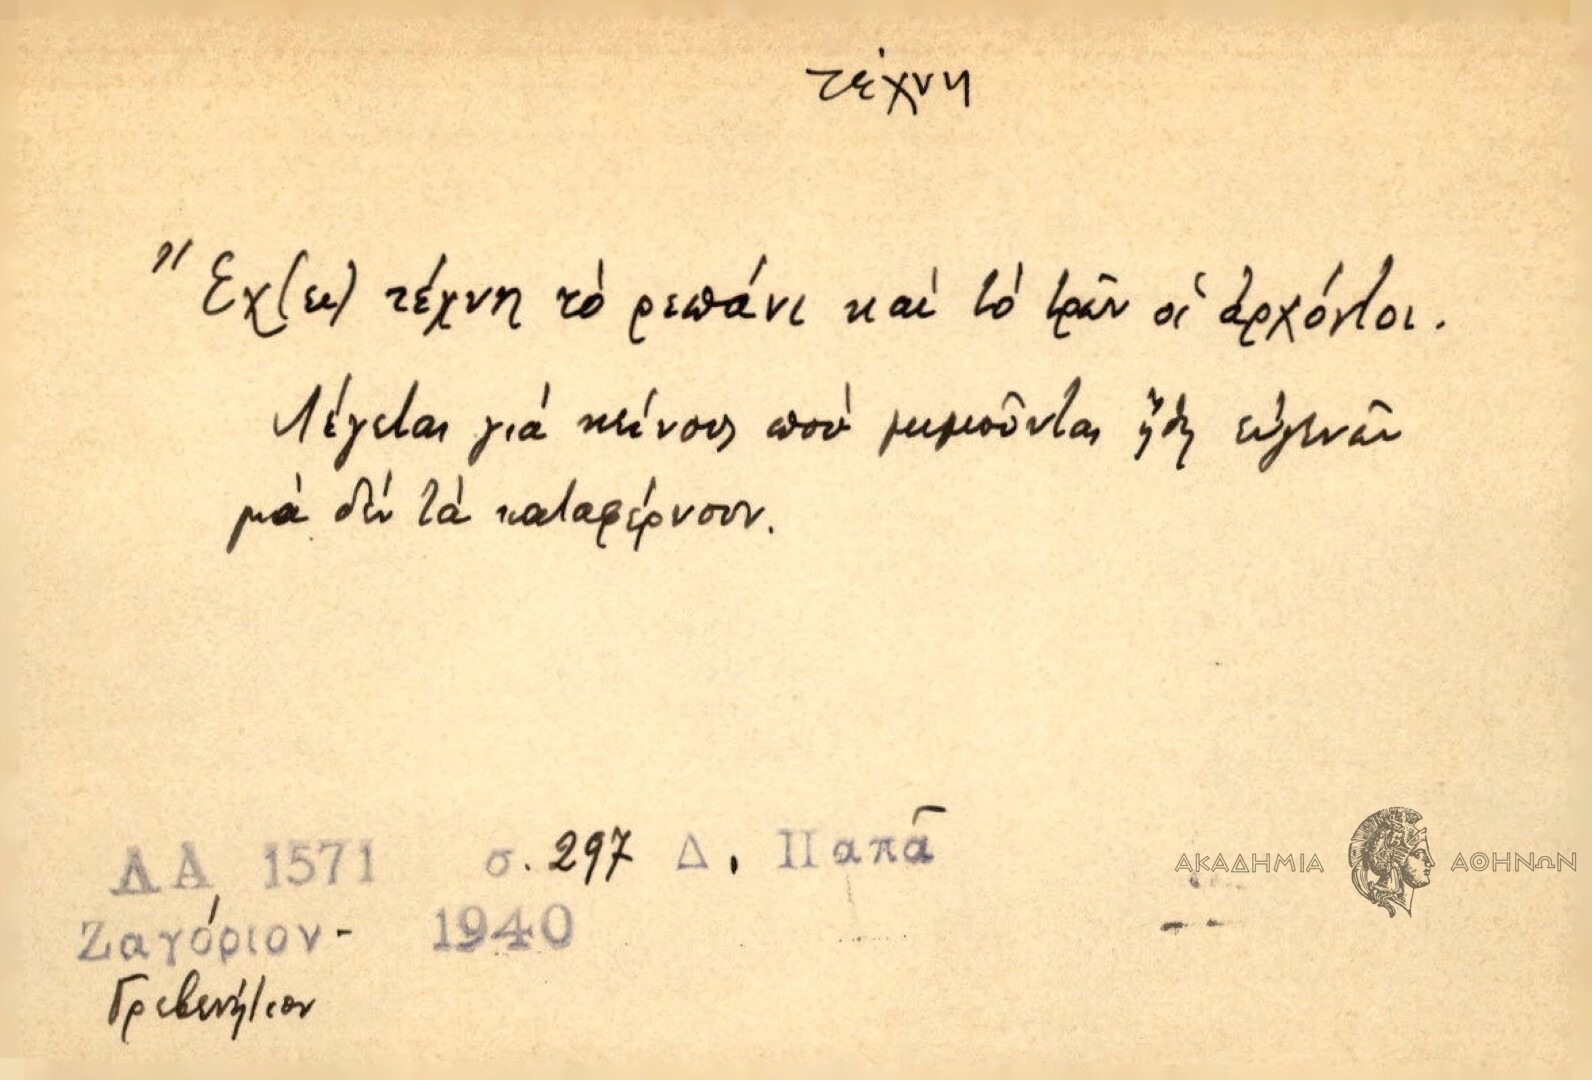 τέχνη
"Εχ(ει) τέχνη τό ρεπάνι καί τό τρῶν οἱ ἀρχόντοι.
Λέγεται γιά κείνους πού μιμοῦνται ἤθη εὐγενῶν
μά δέν τά καταφέρνουν.
ΛΑ 1571 σ. 297 Δ. Παπᾶ
Ζαγόριον - 1940
Γρεβενήτιον
ΑΚΑΔΗΜΙΑ ΑΘΗΝΩΝ